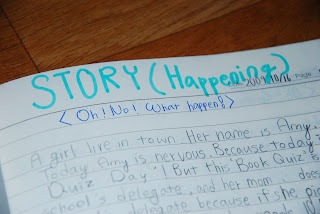 STORY (Happening)
2009/10/16 page
< Oh! No! What happen? >
A girl live in town. Her name is Amy.
Today Amy is nervous. Because today
Quiz Day! But this "Book Quiz" is
school's delegate, and her mom does
delegate because if she